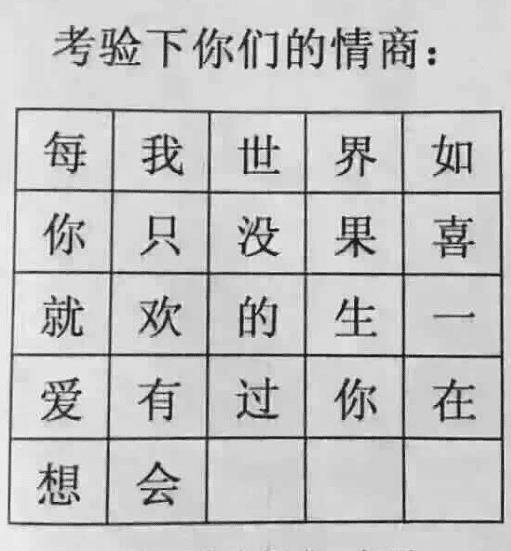 考验下你们的情商：
每 我 世 界 如
你 只 没 果 喜
就 欢 的 生 一
爱 有 过 你 在
想 会